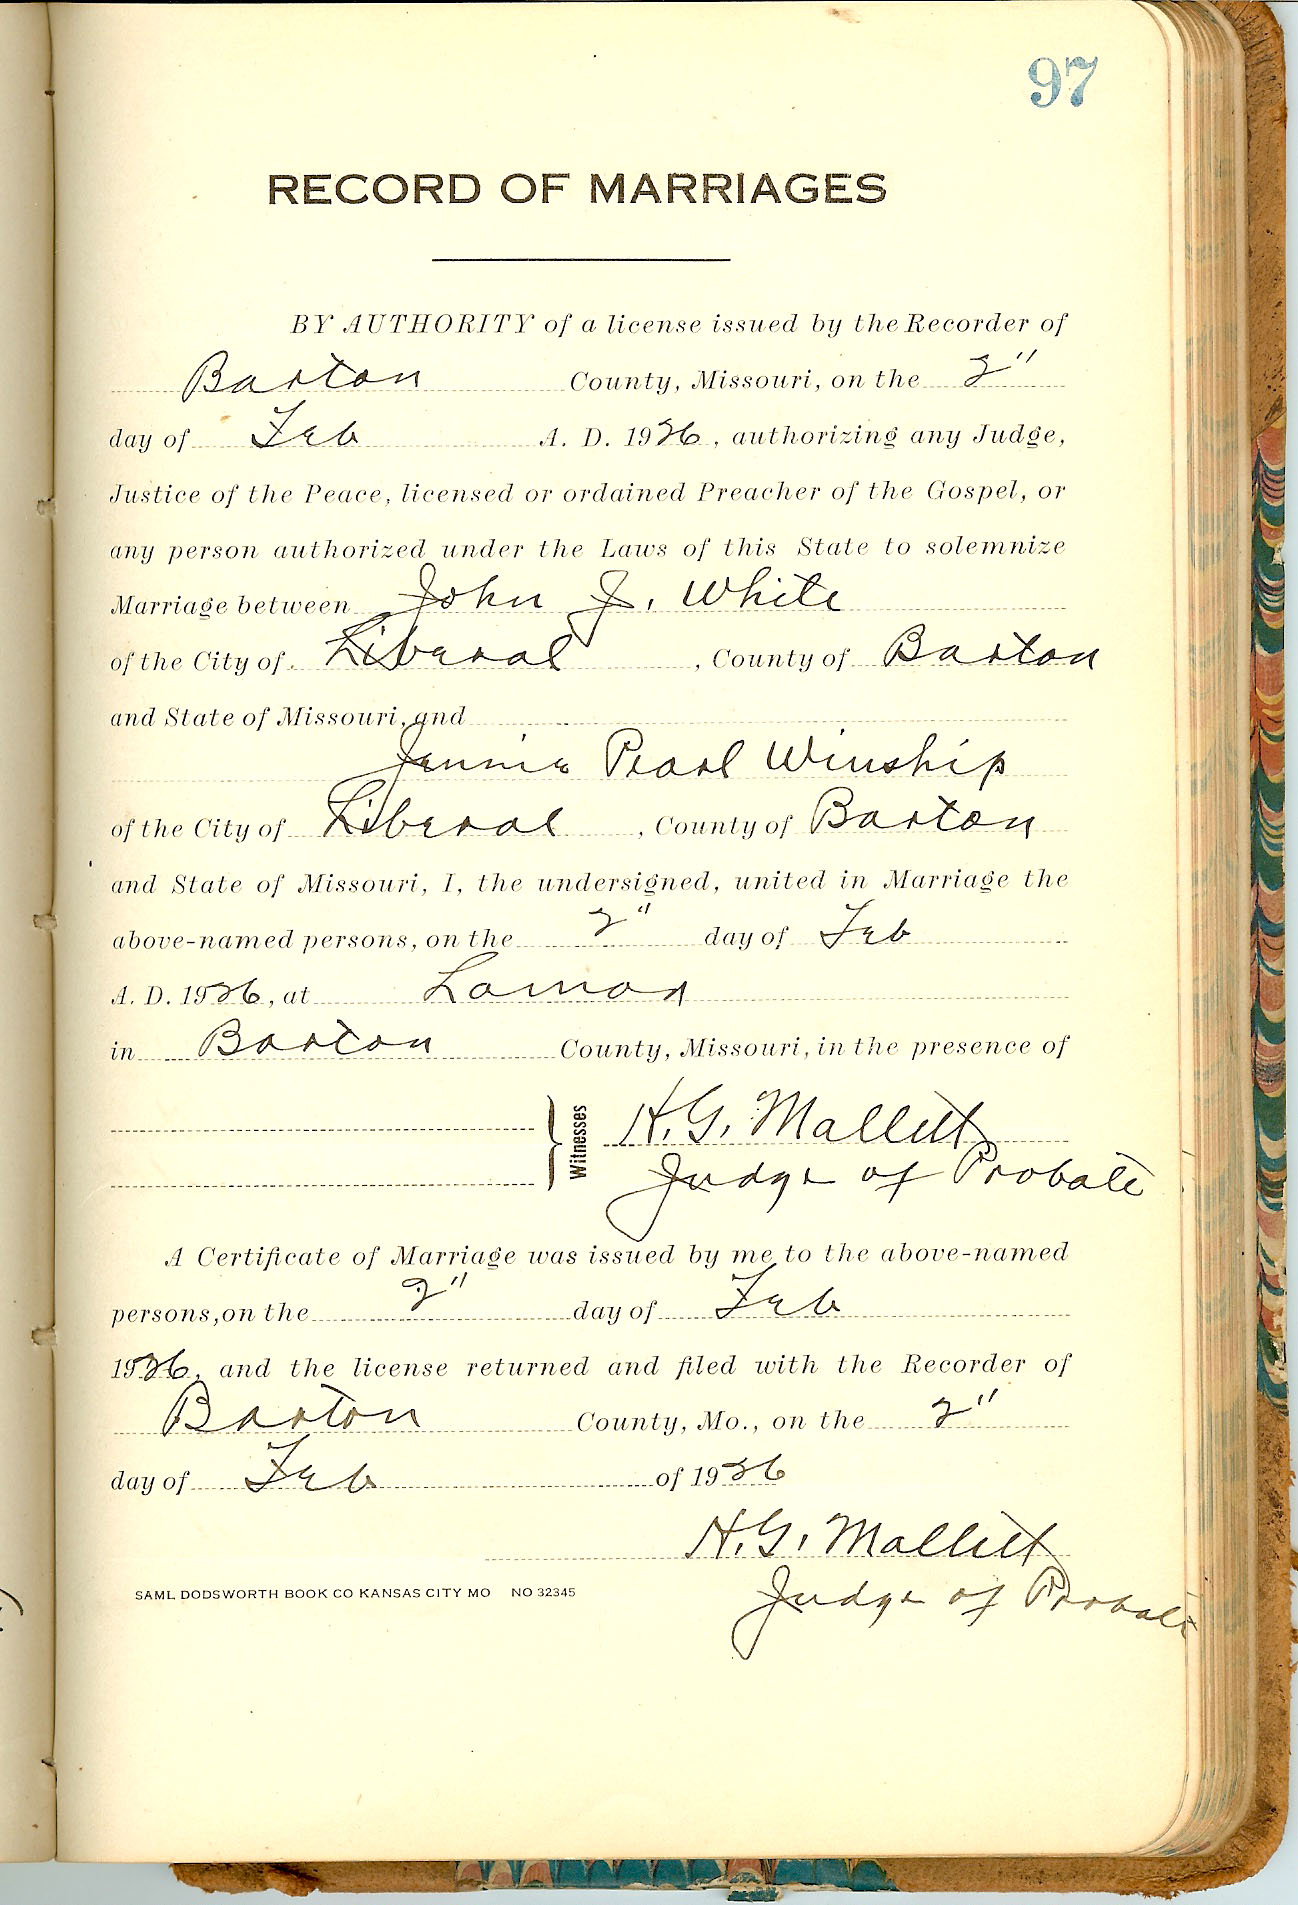 97
RECORD OF MARRIAGES
BY AUTHORITY of a license issued by the Recorder of
Barton County, Missouri, on the 2"
day of Feb A. D. 1926, authorizing any Judge,
Justice of the Peace, licensed or ordained Preacher of the Gospel, or
any person authorized under the Laws of this State to solemnize
Marriage between John J. White
of the City of Liberal, County of Barton
and State of Missouri, and
Jennie Pearl Winship
of the City of Liberal, County of Barton
and State of Missouri, I, the undersigned, united in Marriage the
above-named persons, on the 2" day of Feb
A. D. 1926, at Lamar
in Barton County, Missouri, in the presence of
Witnesses H. G. Mallett
Judge of Probate
A Certificate of Marriage was issued by me to the above-named
persons, on the 2" day of Feb
1926, and the license returned and filed with the Recorder of
Barton County, Mo., on the 2"
day of Feb of 1926
H. G. Mallett
SAML DODSWORTH BOOK CO KANSAS CITY MO NO 32345
Judge of Probate